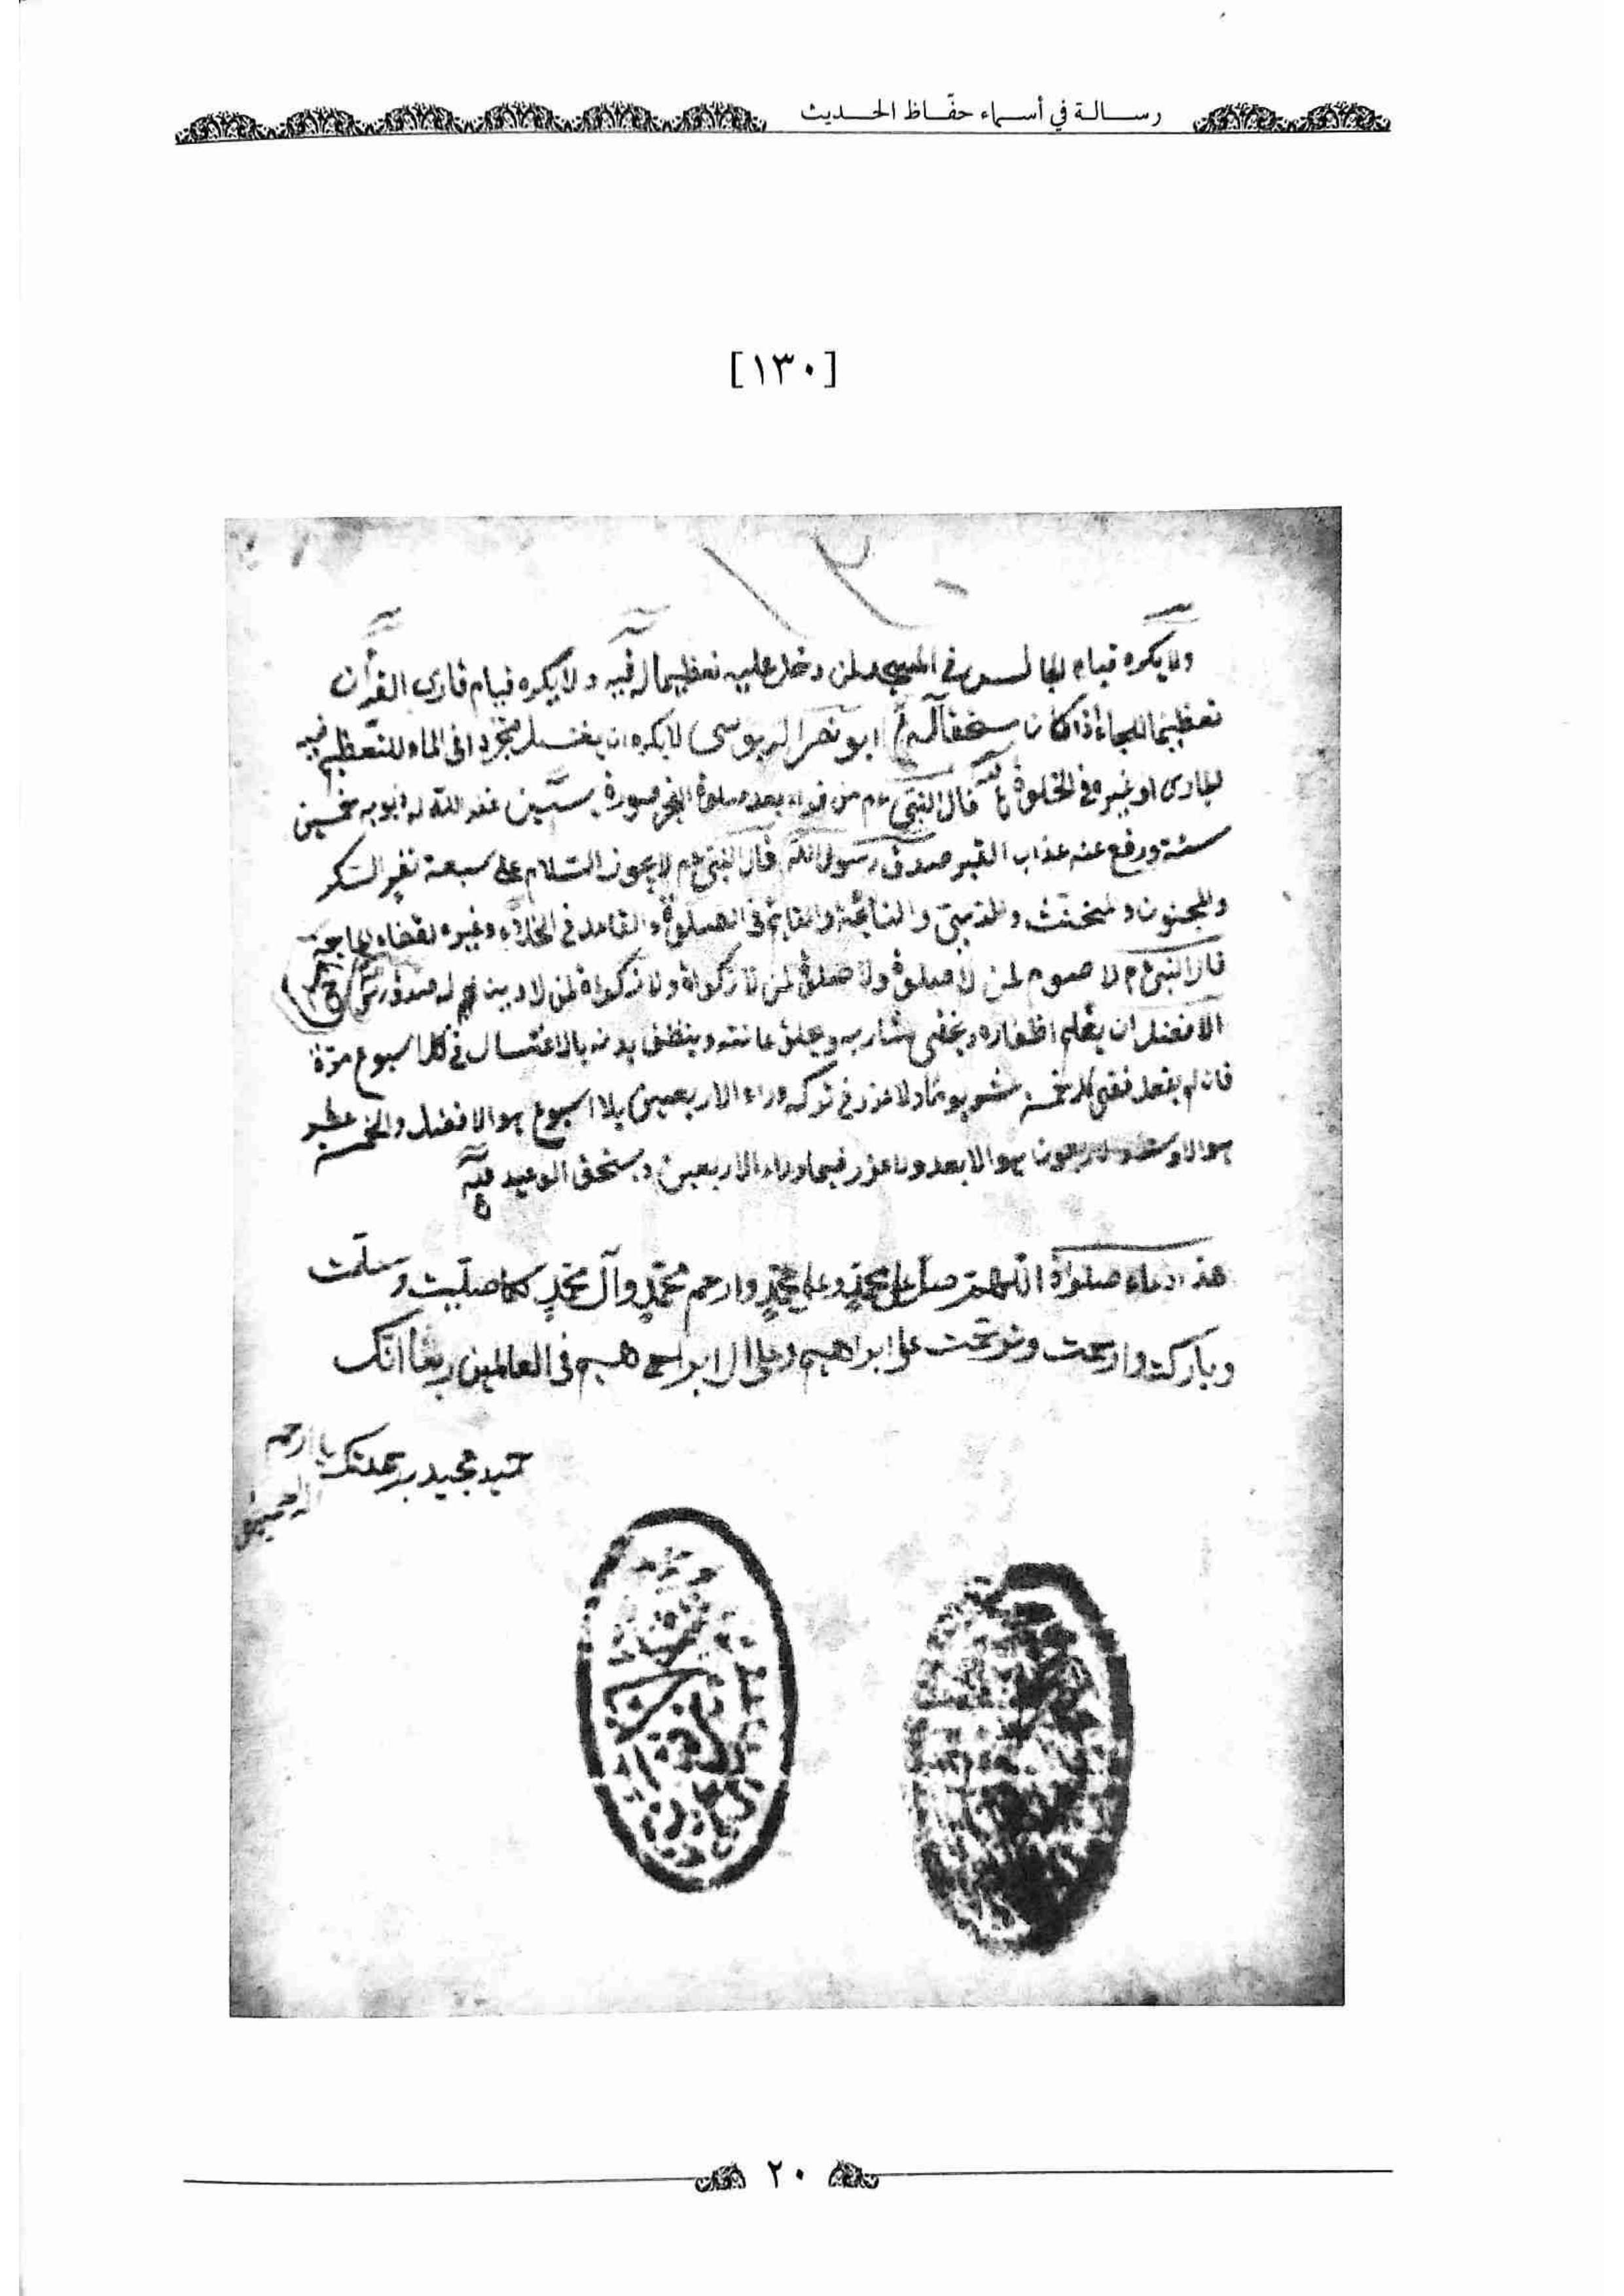 رسالة في أسماء حفّاظ الحديث
[١٣٠]
١٣٠
ولا يكره قيام الجالس في المسجد لمن دخل عليه تعظيما له قنيه ولا يكره قيام قارى القرآن
تعظيما للجاء اذا كان مستحقا له ابو نصر الدبوسى لا يكره ان يغتسل متجردا فى الماء
الجارى او غيره فى الخلوة قال النبى عم من قراء بعد صلوة الفجر سورة يستين غفر الله له ذنوبه خمسين
سنة ورفع عنه عذاب القبر صدق رسول الله قال النبى عم لا يجوز السلام على سبعة نفر السكر
والمجنون والمخنث والنائمة والقايم فى الصلوة والقاعد فى الخلاء وغيره لقضاء الحاجة
قال النبى عم لا صوم لمن لا صلوة ولا صلوة لمن لا زكواة ولا زكواة لمن لا دين له صدق رس
الافضل ان يقلم اظفاره ويخفى شاربه ويحلق عانته وينظف بدنه بالاغتسال فى كل اسبوع مرة
فان لم يفعل ففى كل خمسة عشر يوما ولا عذر فى تركه وراء الاربعين الاسبوع هو الافضل والخمسة عشر
هو الاوسط والاربعون هو الابعد ولا عذر فيما وراء الاربعين ويستحق الوعيد قنيه
هذا دعاء صلواة اللهم صل على محمد وعلى محمد وارحم محمد وآل محمد كما صليت وسلمت
وباركت وارحمت وترحمت على ابراهيم وعلى ال ابراهيم فى العالمين ربنا انك
حميد مجيد برحمتك يا ارحم
الرحمين
٢٠